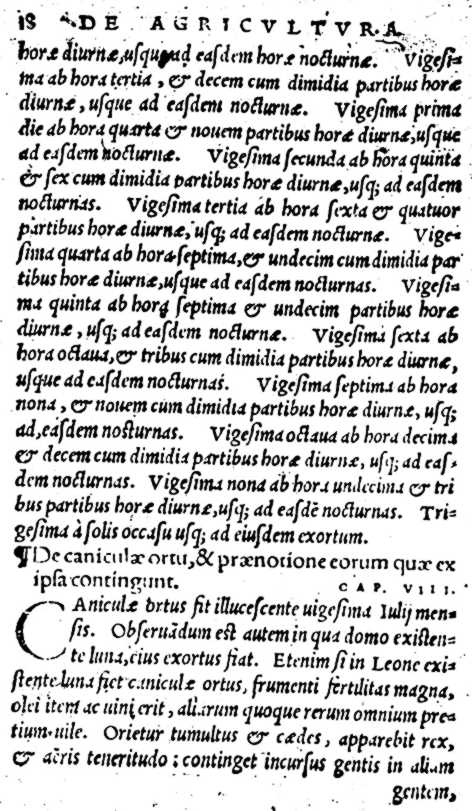 18 DE AGRICVLTVRA
horæ diurnæ, usque ad easdem horæ nocturnæ. Vigesi=
ma ab hora tertia, & decem cum dimidia partibus horæ
diurnæ, usque ad easdem nocturnæ. Vigesima prima
die ab hora quarta & nouem partibus horæ diurnæ, usque
ad easdem nocturnæ. Vigesima secunda ab hora quinta
& sex cum dimidia partibus horæ diurnæ, usq; ad easdem
nocturnas. Vigesima tertia ab hora sexta & quatuor
partibus horæ diurnæ, usq; ad easdem nocturnæ. Vige=
sima quarta ab hora septima, & undecim cum dimidia par
tibus horæ diurnæ, usque ad easdem nocturnas. Vigesi=
ma quinta ab hora septima & undecim partibus horæ
diurnæ, usq; ad easdem nocturnæ. Vigesima sexta ab
hora octaua, & tribus cum dimidia partibus horæ diurnæ,
usque ad easdem nocturnas. Vigesima septima ab hora
nona, & nouem cum dimidia partibus horæ diurnæ, usq;
ad easdem nocturnas. Vigesima octaua ab hora decima
& decem cum dimidia partibus horæ diurnæ, usq; ad eas=
dem nocturnas. Vigesima nona ab hora undecima & tri
bus partibus horæ diurnæ, usq; ad easdē nocturnas. Tri=
gesima à solis occasu usq; ad eiusdem exortum.
¶ De caniculæ ortu, & prænotione eorum quæ ex
ipsa contingunt. CAP. VIII.
Caniculæ ortus fit illucescente uigesima Iulij men=
sis. Obseruādum est autem in qua domo existen=
te luna, eius exortus fiat. Etenim si in Leone exi=
stente luna fiet caniculæ ortus, frumenti fertilitas magna,
olei item ac uini erit, aliarum quoque rerum omnium pre=
tium uile. Orietur tumultus & cædes, apparebit rex,
& aëris teneritudo: continget incursus gentis in aliam
gentem,